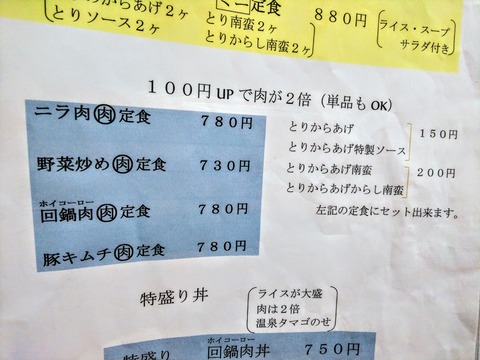 からあげ2ヶ
とりソース2ヶ
ミニ定食
とり南蛮2ヶ
とりからし南蛮2ヶ
880円
ライス・スープ
サラダ付き
100円UPで肉が2倍（単品もOK）
ニラ肉㊥定食 780円
野菜炒め㊥定食 730円
ホイコーロー
回鍋肉㊥定食 780円
豚キムチ㊥定食 780円
とりからあげ
とりからあげ特製ソース
150円
とりからあげ南蛮
とりからあげからし南蛮
200円
左記の定食にセット出来ます。
特盛り丼
ライスが大盛
肉は2倍
温泉タマゴのせ
ホイコーロー
特盛り 回鍋肉丼 750円